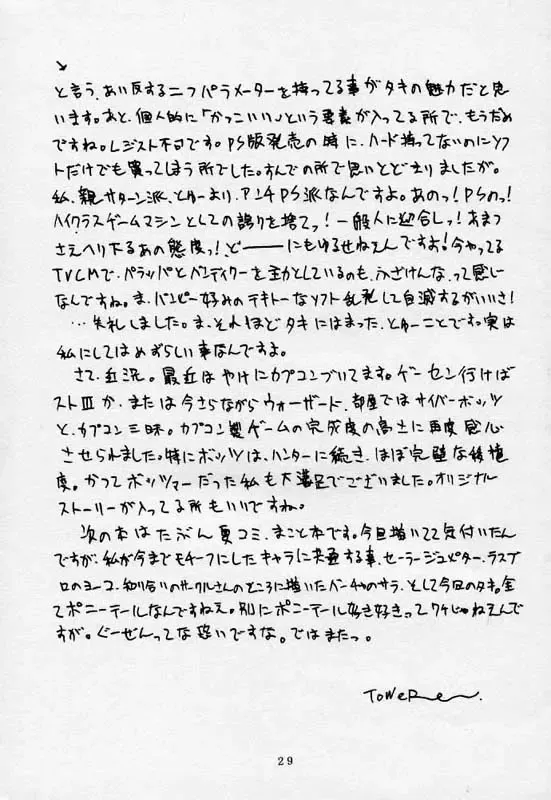 と言う、あい反する二つパラメーターを持ってる事がタキの魅力だと思
います。あと、個人的に「かっこいい」という要素が入ってる所で、もうだめ
ですね。レジスト不可です。PS版発売の時に、ハード持ってないのにソフ
トだけでも買ってしまう所でした。すんでの所で思いとどまりましたが。
私、親サターン派、とゆーより、アンチPS派なんですよ。あのっ!PSのっ!
ハイクラスゲームマシンとしての誇りを捨てっ!一般人に迎合しっ!あまつ
さえへり下るあの態度っ!どーーーにもゆるせねえんですよ!今やってる
TVCMで、パラッパとバンディクーを主力としているのも、ふざけんな、って感じ
なんですね。ま、パンピー好みのテキトーなソフト乱発して自滅するがいいさ!
…失礼しました。ま、それほどタキにはまった、とゆーことです。実は
私にしてはめずらしい事なんですよ。
さて、近況。最近はやけにカプコンづいてます。ゲーセン行けば
ストⅢか、または今さらながらウォーザード、部屋ではサイバーボッツ
と、カプコン三昧。カプコン製ゲームの完成度の高さに再度感心
させられました。特にボッツは、ハンターに続き、ほぼ完璧な移植
度。かつてボッツマーだった私も大満足でございました。オリジナル
ストーリーが入ってる所もいいですね。
次の本はたぶん夏コミ、まこと本です。今回描いてて気付いたん
ですが、私が今までモチーフにしたキャラに共通する事、セーラージュピター、ラスブ
ロのヨーコ、知り合いのサークルさんのところに描いたバーチャのサラ、そして今回のタキ。全
てポニーテールなんですねえ。別にポニーテール好き好きってワケじゃねえんで
すが。ぐーぜんってな恐いですな。ではまたっ。
29